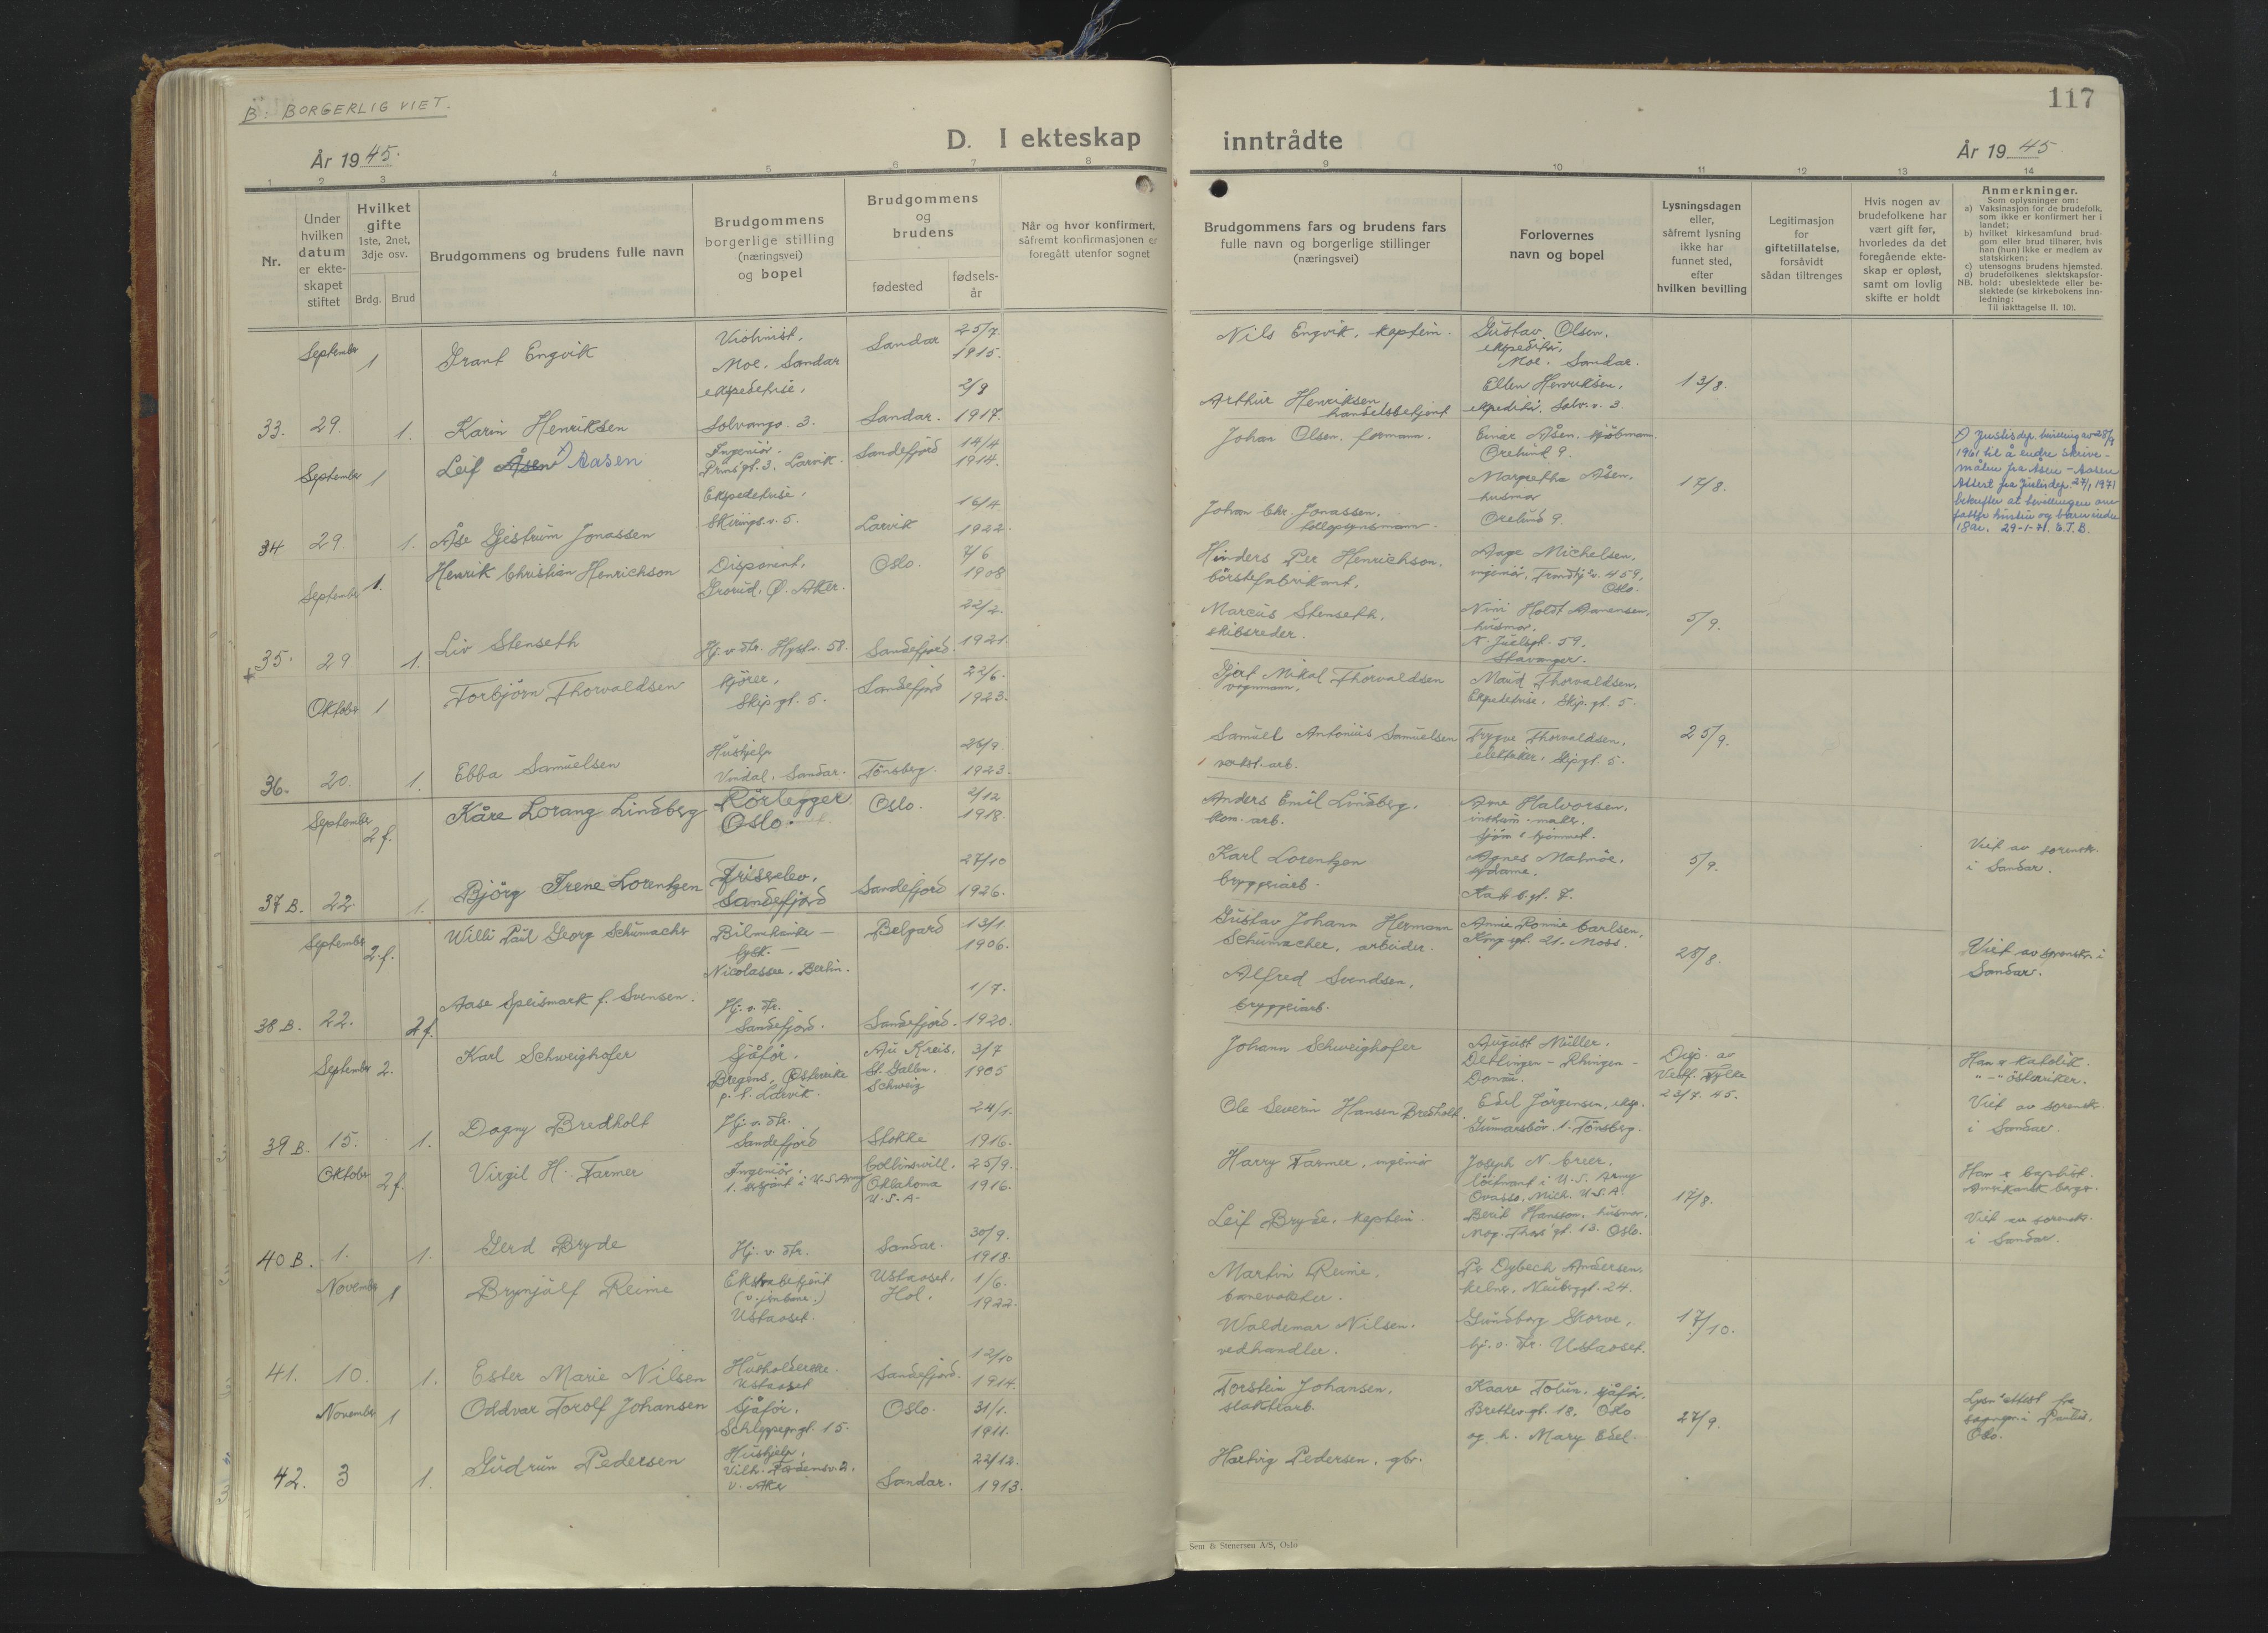 B. BORGERLIG VIET.
117
D. I ekteskap inntrådte
År 1945.
År 1945
1 2 3 4 5 6 7 8 9 10 11 12 13 14
Nr.
Under
hvilken
datum
er ekte-
skapet
stiftet
Hvilket
gifte
1ste, 2net,
3dje osv.
Brdg. Brud
Brudgommens og brudens fulle navn
Brudgommens
borgerlige stilling
(næringsvei)
og bopel
Brudgommens
og
brudens
fødested
fødsels-
år
Når og hvor konfirmert,
såfremt konfirmasjonen er
foregått utenfor sognet
Brudgommens fars og brudens fars
fulle navn og borgerlige stillinger
(næringsvei)
Forlovernes
navn og bopel
Lysningsdagen
eller,
såfremt lysning
ikke har
funnet sted,
efter
hvilken bevilling
Legitimasjon
for
giftetillatelse,
forsåvidt
sådan tiltrenges
Hvis nogen av
brudefolkene har
vært gift før,
hvorledes da det
foregående ekte-
skap er opløst,
samt om lovlig
skifte er holdt
Anmerkninger.
Som oplysninger om:
a) Vaksinasjon for de brudefolk,
som ikke er konfirmert her i
landet;
b) hvilket kirkesamfund brud-
gom eller brud tilhører, hvis
han (hun) ikke er medlem av
statskirken;
c) utensogns brudens hjemsted.
d) brudefolkenes slektskapsfor-
NB. hold: ubeslektede eller be-
slektede (se kirkebokens inn-
ledning:
Til iakttagelse II. 10).
September 1 Grant Engvik
Violinist,
Moe, Sandar
Sandar
25/7.
1915.
Nils Engvik, kaptein.
Gustav Olsen,
ekspeditør,
Moe. Sandar.
33. 29. 1. Karin Henriksen
ekspeditrise,
Solvangv. 3.
Sandar.
2/9
1917.
Arthur Henriksen
handelsbetjent
Ellen Henriksen,
ekspeditr. Solv.v. 3.
13/8.
September 1 Leif Åsen x) Aasen
Ingeniör.
Prins gt. 3. Larvik.
Sandefjord
14/4
1914.
Johan Olsen, formann.
Einar Åsen. kjöbmann.
Örelund 9.
34 29. 1. Åse Gjestrum Jonassen
Ekspeditrise,
Skirings.v. 5.
Larvik
16/4.
1922.
Johan Chr. Jonassen,
Margretha Åsen,
husmor
Örelund 9.
17/8.
x) Justisdep. bevilling av 28/9
1961 til å endre skrive-
måten fra Åsen - Aasen
Attest fra Justisdep. 27/1 1971
bekrefter at bevillingen om-
fatter hustru og barn under
18 år. 29-1-71. E.T.B.
September 1. Henrik Christian Henrichson
Disponent,
Grorud, Ø. Aker.
Oslo.
7/6
1908
Hinders Per Henrichson,
börstefabrikant.
Aage Michelsen,
ingeniör, Trondhj.v. 459,
Oslo.
35. 29 1. Liv Stenseth
Hj. v. str. Hystv. 58.
Sandefjord.
22/2.
1921.
Marcus Stenseth,
skibsreder.
Nini Holdt Aanensen,
husmor,
N. Juelsgt. 59.
Stavanger.
5/9.
Oktober 1 Torbjörn Thorvaldsen
kjörer,
Skip.gt. 5.
Sandefjord
22/6.
1923.
Gjert Mikal Thorvaldsen
vognmann,
Maud Thorvaldsen,
Ekspeditrise. Skip.gt. 5.
36. 20. 1. Ebba Samuelsen
Hushjelp
Vindal, Sandar.
Tönsberg.
1923.
Samuel Antonius Samuelsen
verkst. arb.
Trygve Thorvaldsen,
elektriker, Skipgt. 5.
25/9.
September 2 f. Kåre Lorang Lindberg
Rörlegger
Oslo.
Oslo.
2/12
1918.
Anders Emil Lindberg,
kom. arb.
Arne Halvorsen,
37 B. 22. 1. Björg Irene Lorentzen
Frisselev,
Sandefjord
Sandefjord
27/10
1926.
Karl Lorentzen
bryggeriarb.
Agnes Malmöe,
5/9.
Viet av sorensk.
i Sandar.
September 2.f. Willi Paul Georg Schumacher
Nicolassee. Berlin.
Belgard
13/1.
1906.
Gustav Johann Hermann
Schumacher, arbeider.
Annie Ronnie Carlsen,
Kong.gt. 21. Moss.
28/8.
Viet av sorensk. i
Sandar.
38 B. 22. 2 f. Aase Speismark f. Svensen.
Hj. v. str.
Sandefjord.
Sandefjord.
1/7.
1920.
Alfred Svendsen,
bryggeriarb.
September 2. Karl Schweighofer
Sjåför.
Bregens, Österrike
p. t. Larvik.
Au Kreis,
St. Gallen.
Schweiz
3/7
1905
Johann Schweighofer
August Müller.
Disp. av
Vestf. Fylke
23/7. 45.
Han er katolik.
" -"- österriker.
39 B. 15. 1. Dagny Bredholt
Hj. v. str.
Sandefjord
Stokke
24/1.
1916.
Ole Severin Hansen Bredholt.
Edel Jörgensen, eksp.
Gunnarsbör. 1. Tönsberg.
Viet av sorensk.
i Sandar.
Oktober 2 f. Virgil H. Farmer
Ingeniör,
1. sersjant i U.S. Army
Collinsvill.
Oklahoma
U.S.A.
25/9.
1916.
Harry Farmer, ingeniör
Joseph N. Greer,
löitnant i U.S. Army
Owasso, Mich. U.S.A.
17/8.
Han er baptist.
Amerikansk borger.
40 B. 1. 1. Gerd Bryde
Hj. v. str.
Sandar.
30/9.
1918.
Leif Bryde, kaptein.
Berit Hansson, husmor,
Mog. Thors' gt. 13. Oslo.
Viet av sorensk.
i Sandar.
November 1 Brynjulf Reime
Ekstrabetjent
(v. jernbane.)
Ustaoset.
Ustaoset,
Hol.
1/6.
1922.
Martin Reime,
banevokter.
Per Dybech Andersen,
kelner, Neubergt. 24.
41. 10. 1. Ester Marie Nilsen
Husholderske.
Ustaoset
Sandefjord.
12/10
1914.
Waldemar Nilsen.
vedhandler.
Gundborg Skorve,
hj. v. str. Ustaoset.
17/10.
November 1 Oddvar Torolf Johansen
Sjåför.
Schleppegr.gt. 15.
Oslo.
31/1.
1911.
Torstein Johansen,
slakteriarb.
Kaare Tolun, sjåför,
Brettev.gt. 18. Oslo
og h. Mary Edel.
27/9.
Lysn. attest fra
sogn.pr. i Paulus,
Oslo.
42. 3 1. Gudrun Pedersen
Hushjelp,
V. Aker
Sandar.
22/12.
1913.
Hartvig Pedersen, gbr.
Sem & Stenersen A/S, Oslo